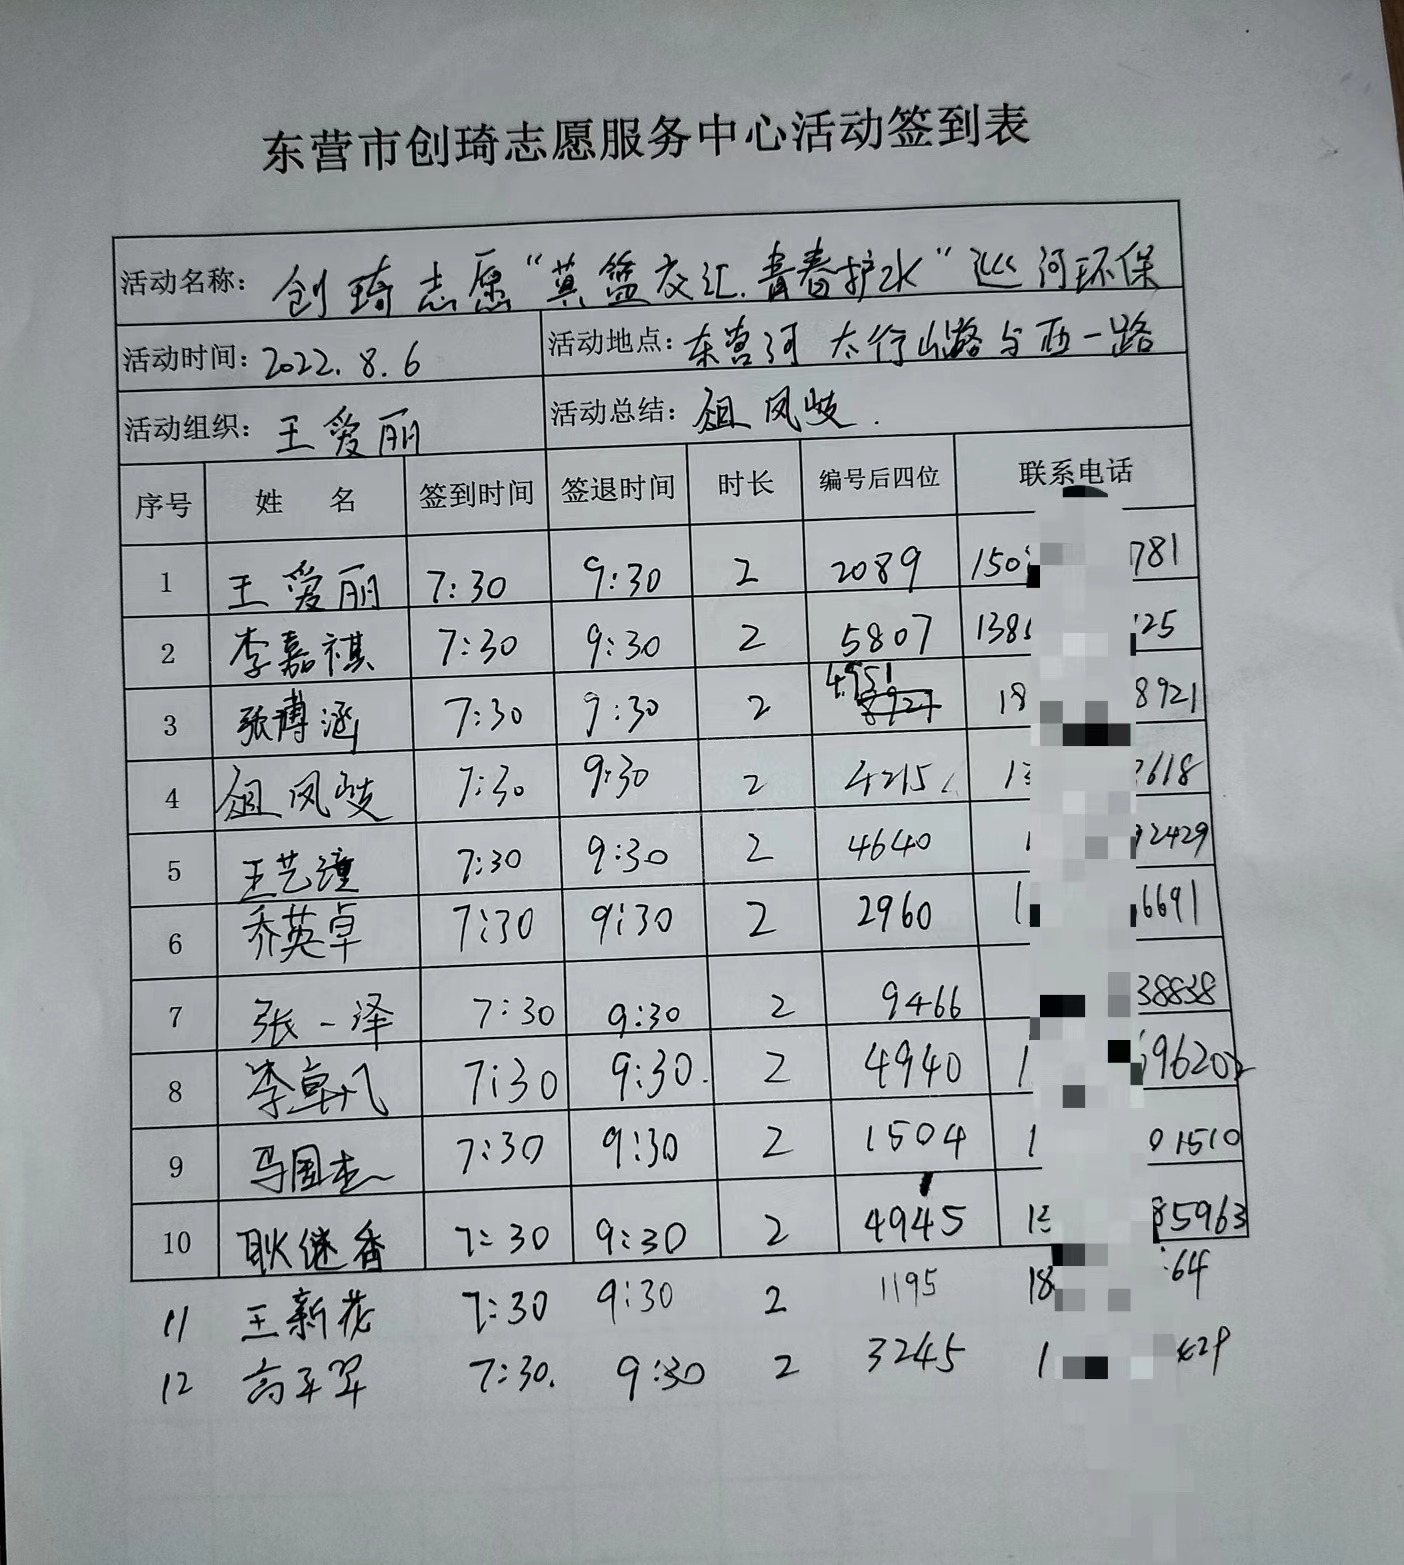 东营市创琦志愿服务中心活动签到表
活动名称: 创琦志愿“蓝交汇.青春护水”巡河环保
活动时间: 2022.8.6 活动地点: 东营河 太行山路与西一路
活动组织: 王爱丽 活动总结: 俎凤岐.
序号 姓 名 签到时间 签退时间 时长 编号后四位 联系电话
1 王爱丽 7:30 9:30 2 2089 150 781
2 李嘉祺 7:30 9:30 2 5807 138 25
3 张博涵 7:30 9:30 2 4951 18 8921
4 俎凤岐 7:30 9:30 2 4215 13 618
5 王艺潼 7:30 9:30 2 4640 1 92429
6 乔英卓 7:30 9:30 2 2960 1 6691
7 张一泽 7:30 9:30 2 9466 38838
8 李卓凡 7:30 9:30. 2 4940 1 96202
9 马国杰 7:30 9:30 2 1504 1 01510
10 耿继香 7:30 9:30 2 4945 13 85963
11 王新花 7:30 9:30 2 1195 18 64
12 高平翠 7:30. 9:30 2 3245 1 29